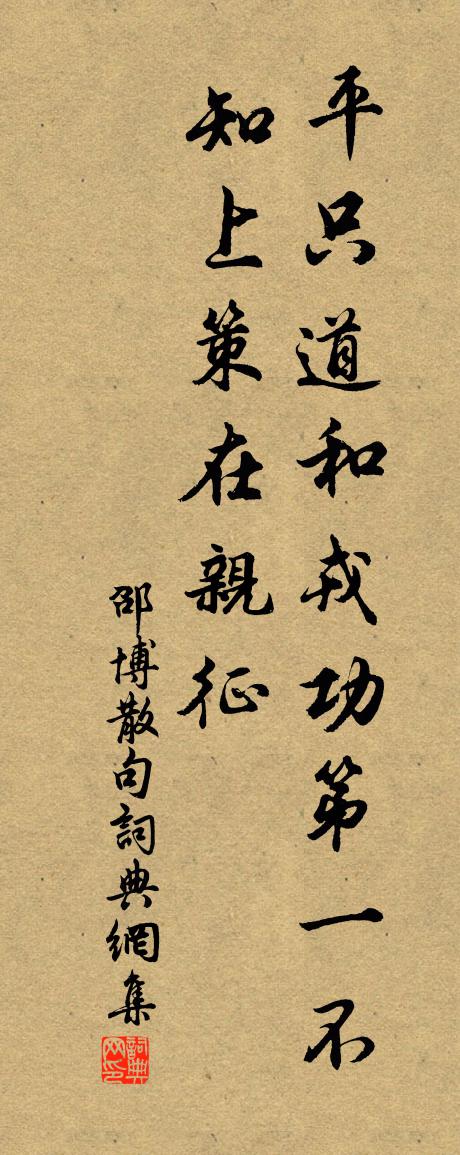 平只道和戎功第一不
知上策在親征
邵博散句詞典網集
詞典网印